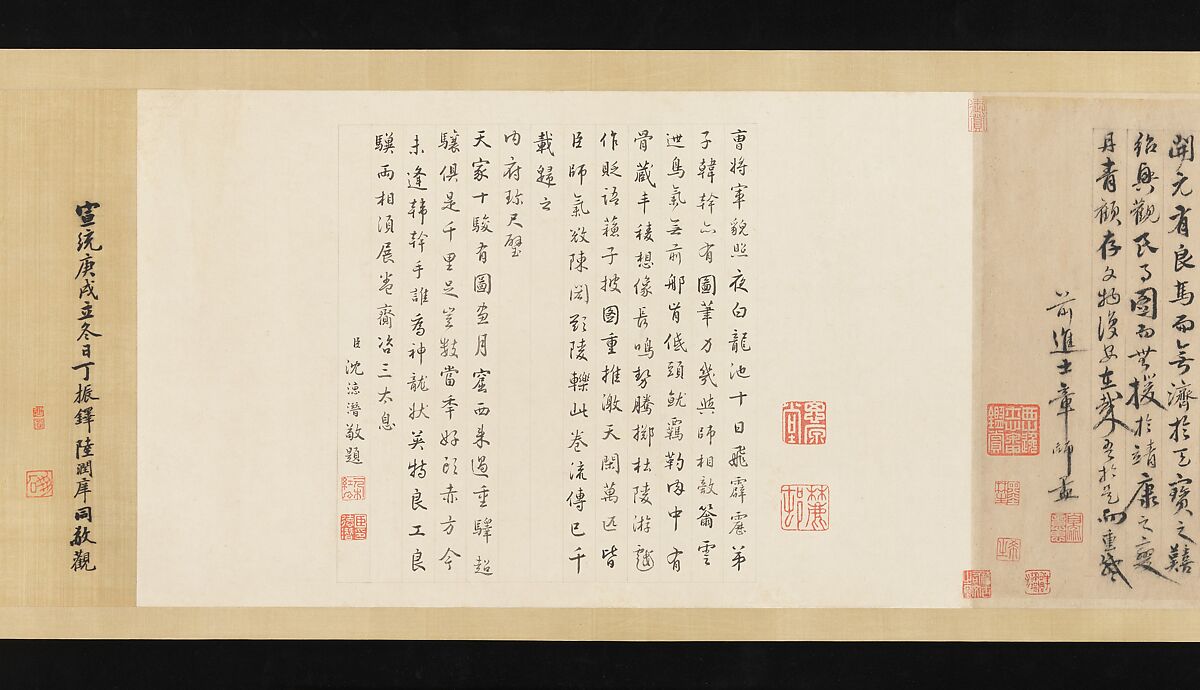 開元有良馬而無濟於天寶之囏
紹興觀民馬圖而無援於靖康之變
丹青顧存文物後
前進士章師
曹將軍貌照夜白龍池十日飛霹靂弟
子韓幹亦有圖筆力幾與師相敵籋雲
迸鳥氣無前那肯低頭就羈勒肉中有
骨蔵丰稜想像長鳴勢騰擲杜陵游戲
作貶語蘓子披圖重推激天閑萬匹皆
臣師氣欲陳閎歐陵轢此卷流傳已千
載歸之
內府珍尺璧
天家十駿有圖畫月窟西来過重驛超
驤俱是千里足豈數當年好頭赤方今
未逢韓幹手誰為神龍狀英特良工良
驥兩相須展卷齎咨三太息
臣沈德潛敬題
宣統庚戌立冬日丁振鐸陸潤庠同敬觀